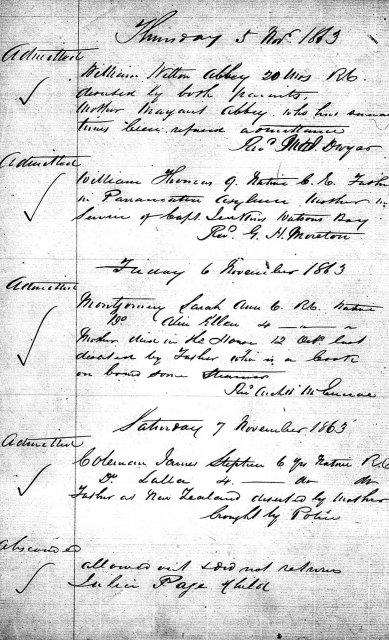 Thursday 5 Novr 1863
Admitted
William Witton Abbey 20 mos R.C.
deserted by both parents
Mother Margaret Abbey who has
times been refused admittance
Revd Dwyer
Admitted
William Thomas 9. Native C. E. Father
in Parramatta Asylum Mother in
Service of Capt Jenkins Watsons Bay
Revd G. H. Moreton
Friday 6 November 1863
Admitted
Montgomery Sarah Ann 6. R.C. Native
Do Allen 4 — " — "
Mother died in the House 12 Octr last
deserted by Father who is a Cook
on board some Steamer
Revd
Saturday 7 November 1863
Admitted
Coleman James Stephen 6 yrs Native R.C.
Do 4. — do do
Father at New Zealand deserted by Mother
brought by Police
absconded
allowed out & did not return
Julia Page & Child